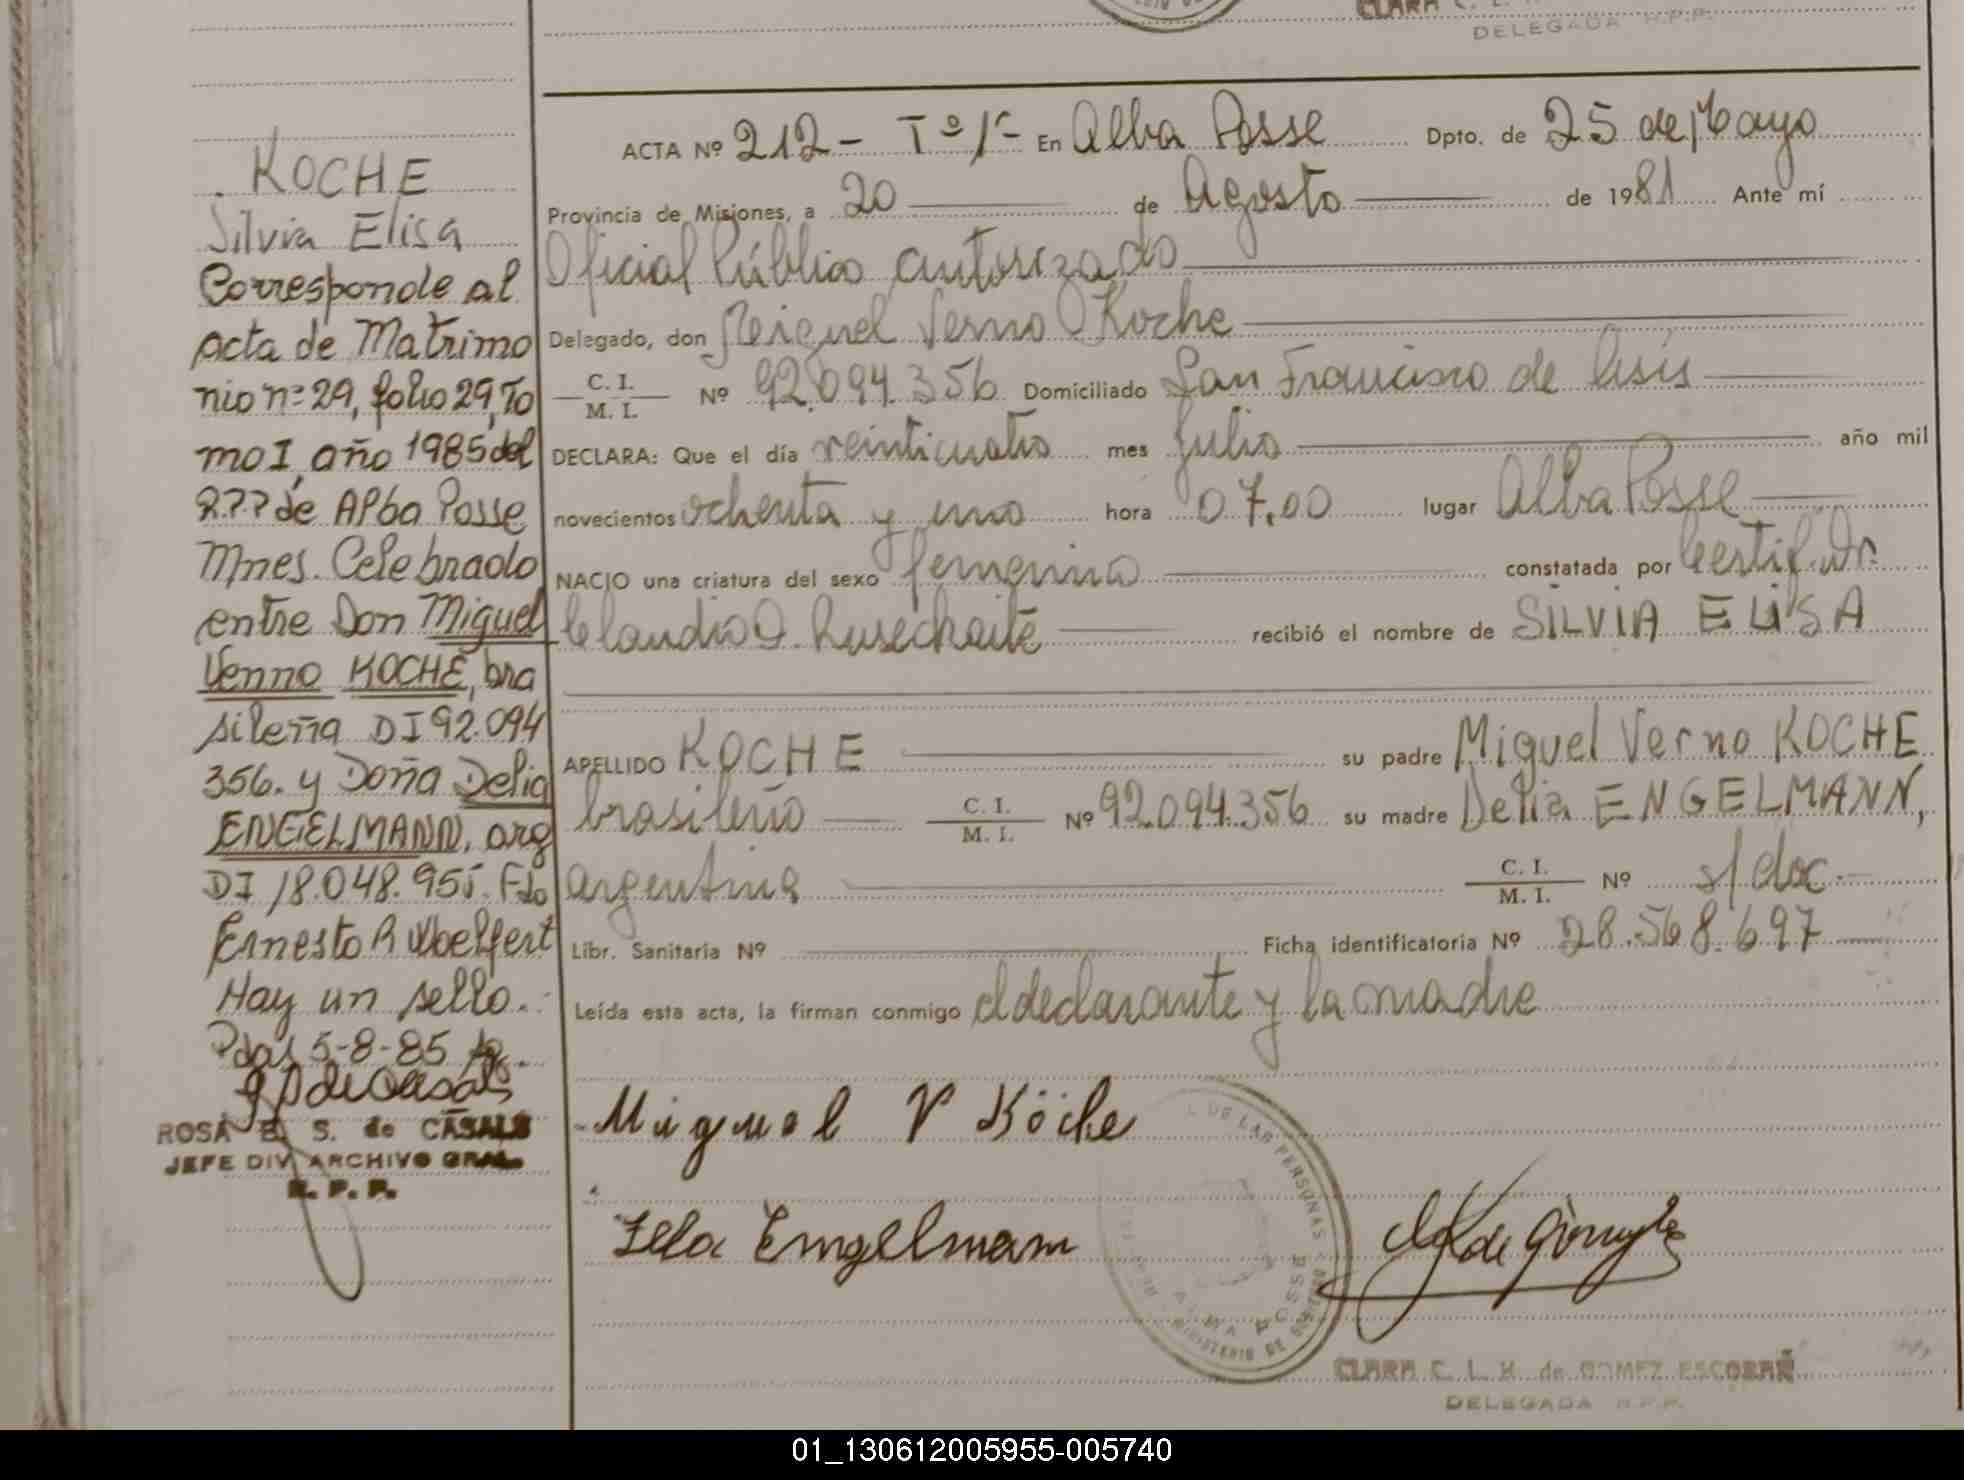 CLARA C. L.
DELEGADA R.P.P.
KOCHE
Silvia Elisa
Corresponde al
acta de Matrimo
nio nº 29, folio 29, To
mo I, año 1985 del
R.P.P de Alba Posse
Mnes. Celebrado
entre Don Miguel
Venno KOCHE, bra
sileña DI 92.094
356. y Doña Delia
ENGELMANN, arg
DI 18.048.955. Fdo
Ernesto R Woelfert
Hay un sello.-
Pdas 5-8-85
ROSA E. S. de CASALS
JEFE DIV. ARCHIVO GRAL.
R. P. P.
ACTA Nº 212 - Tº 1º - En Alba Posse Dpto. de 25 de Mayo
Provincia de Misiones, a 20 de Agosto de 1981 Ante mí
Oficial Público autorizado
Delegado, don Miguel Verno Koche
C. I. M. I. Nº 92.094.356 Domiciliado San Francisco de Asís
DECLARA: Que el día veinticuatro mes Julio año mil
novecientos ochenta y uno hora 07,00 lugar Alba Posse
NACIO una criatura del sexo femenino constatada por Certif. Dr.
Claudio O. recibió el nombre de SILVIA ELISA
APELLIDO KOCHE su padre Miguel Verno KOCHE
brasileño C. I. M. I. Nº 92.094.356 su madre Delia ENGELMANN,
argentina C. I. M. I. Nº s/doc.
Libr. Sanitaria Nº Ficha identificatoria Nº 28.568.697
Leída esta acta, la firman conmigo el declarante y la madre
Miguel V Köche
Engelmann
L DE LAS PERSONAS
MINISTERIO DE GOBIERNO
ALBA POSSE
CLARA C. L. H. de GOMEZ ESCOBAR
DELEGADA R.P.P.
01_130612005955-005740